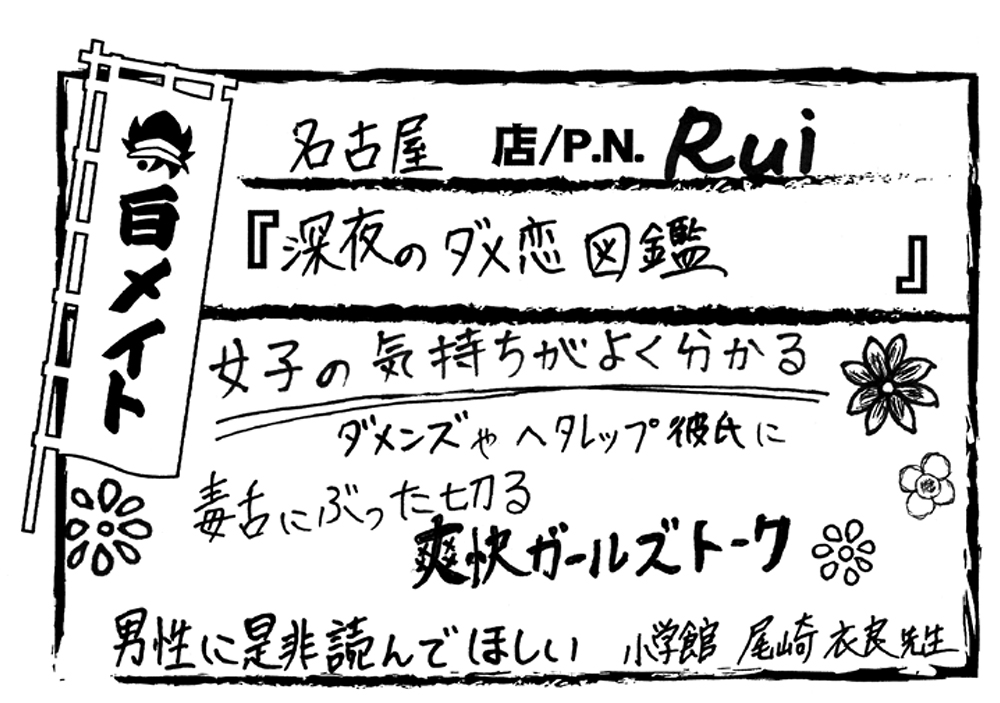 白メイト
名古屋 店/P.N. Rui
『深夜のダメ恋図鑑』
女子の気持ちがよく分かる
ダメンズやヘタレップ彼氏に
毒舌にぶった切る
爽快ガールズトーク
男性に是非読んでほしい 小学館 尾崎衣良先生